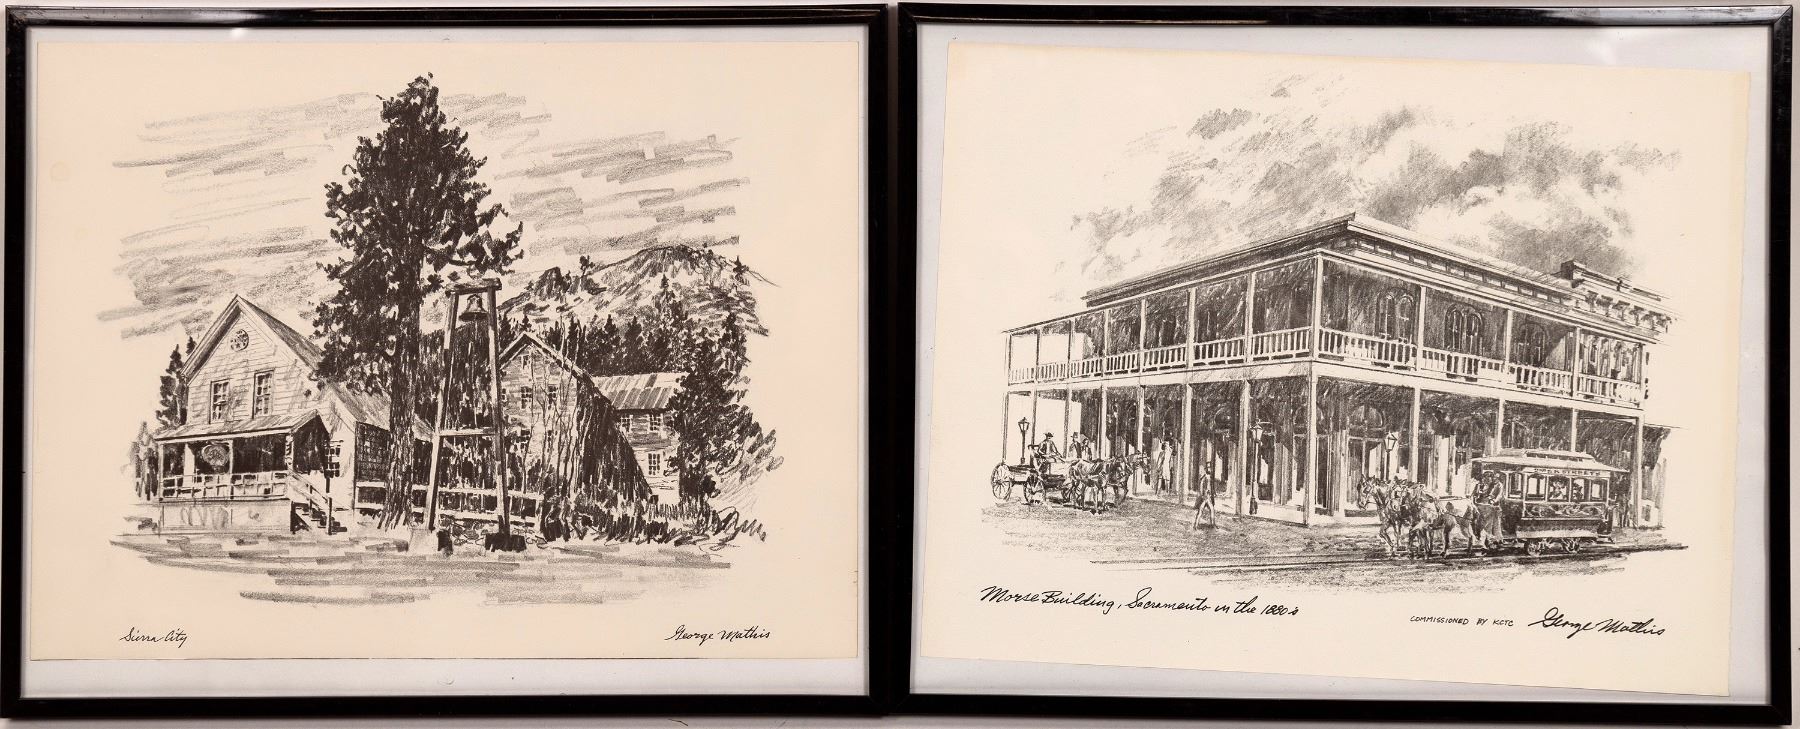 Sierra City
George Mathis
Morse Building, Sacramento in the 1880's
COMMISSIONED BY KCTC
George Mathis